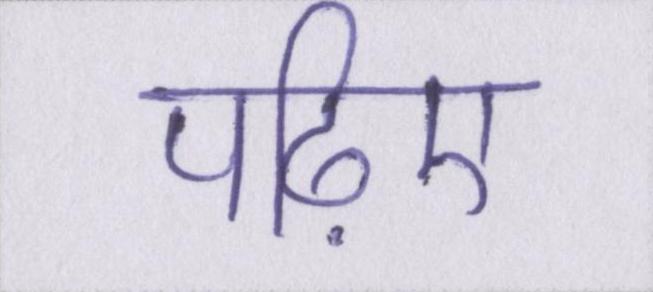 पढ़िए